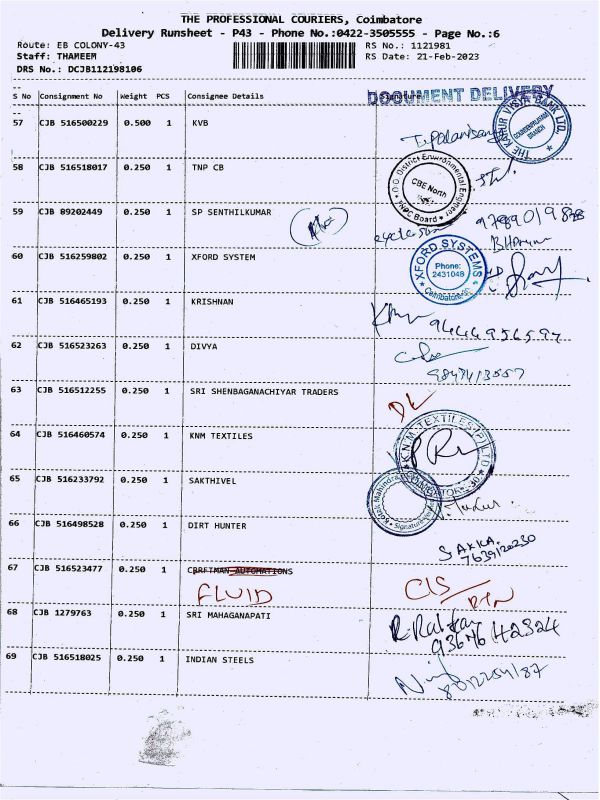 THE PROFESSIONAL COURIERS, Coimbatore
Delivery Runsheet - P43 - Phone No.:0422-3505555 - Page No.:6
Route: EB COLONY-43 RS No.: 1121981
Staff: THAMEEM RS Date: 21-Feb-2023
DRS No.: DCJB112198106
S No Consignment No Weight PCS Consignee Details Signature
DOCUMENT DELIVERY
57 CJB 516500229 0.500 1 KVB
THE KARUR VYSYA BANK LTD.
BRANCH
58 CJB 516518017 0.250 1 TNP CB
O/o District Environmental Engineer
CBE North
TNPC Board
59 CJB 89202449 0.250 1 SP SENTHILKUMAR
60 CJB 516259802 0.250 1 XFORD SYSTEM
XFORD SYSTEMS
Phone:
2431048
Coimbatore
61 CJB 516465193 0.250 1 KRISHNAN
62 CJB 516523263 0.250 1 DIVYA
63 CJB 516512255 0.250 1 SRI SHENBAGANACHIYAR TRADERS
DL
64 CJB 516460574 0.250 1 KNM TEXTILES
K.N.M. TEXTILES (P) LTD
COIMBATORE
65 CJB 516233792 0.250 1 SAKTHIVEL
Kotak Mahindra
Signature
66 CJB 516498528 0.250 1 DIRT HUNTER
67 CJB 516523477 0.250 1 CRRFTMAN AUTOMATIONS
FLUID
68 CJB 1279763 0.250 1 SRI MAHAGANAPATI
69 CJB 516518025 0.250 1 INDIAN STEELS